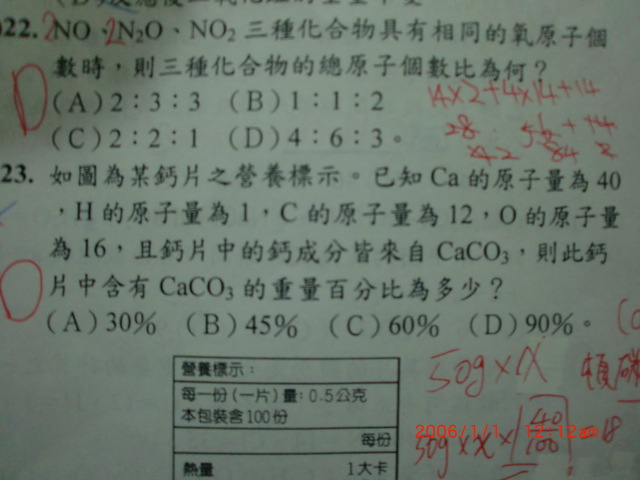 22. NO、N₂O、NO₂ 三種化合物具有相同的氧原子個
數時，則三種化合物的總原子個數比為何？
(A) 2：3：3 (B) 1：1：2
(C) 2：2：1 (D) 4：6：3。
14×2+4×14+14
28
42 84
23. 如圖為某鈣片之營養標示。已知 Ca 的原子量為 40
，H 的原子量為 1，C 的原子量為 12，O 的原子量
為 16，且鈣片中的鈣成分皆來自 CaCO₃，則此鈣
片中含有 CaCO₃ 的重量百分比為多少？
(A) 30% (B) 45% (C) 60% (D) 90%。
營養標示：
每一份(一片)量：0.5公克
本包裝含100份
每份
熱量 1大卡
50g×X
50g×X×40/100=18
2006/1/1